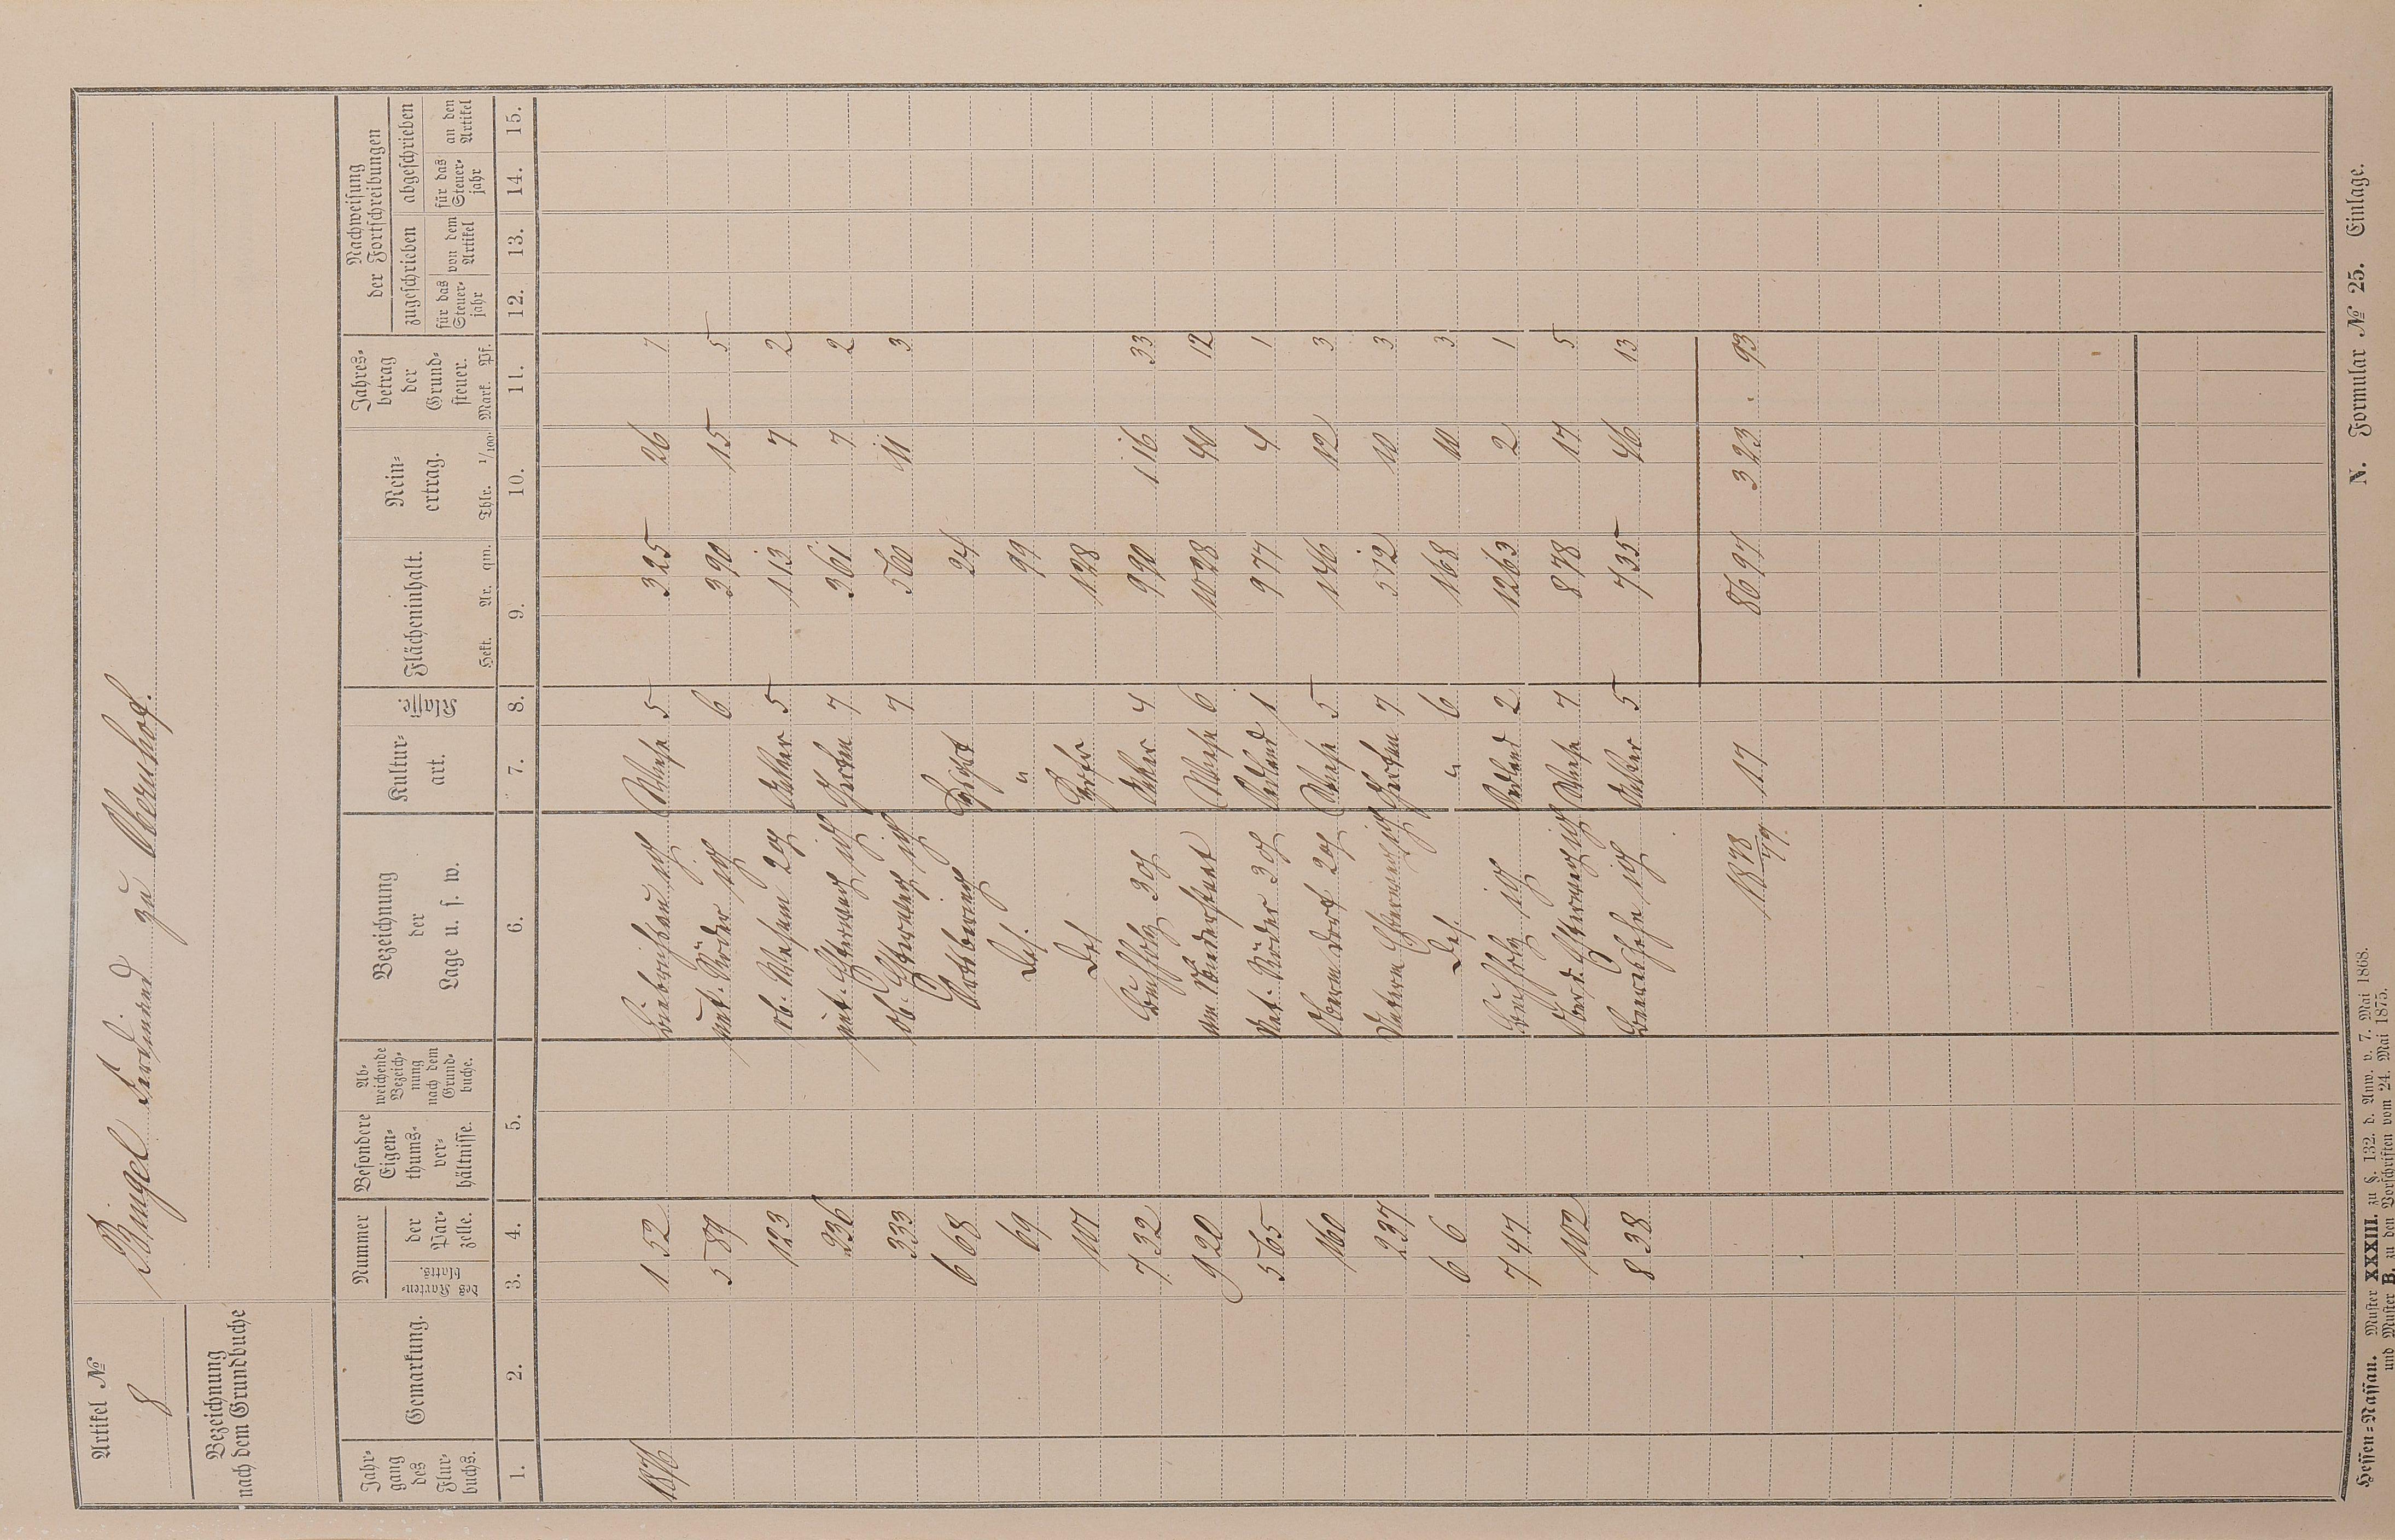 Artikel №
8
Bezeichnung
nach dem Grundbuche
Bingel Ferdinand zu Obernhof.
Jahr-
gang
des
Flur-
buchs.
Gemarkung.
Nummer
des Karten-
blatts.
der
Par-
zelle.
Besondere
Eigen-
thums-
ver-
hältnisse.
Ab-
weichende
Bezeich-
nung
nach dem
Grund-
buche.
Bezeichnung
der
Lage u. s. w.
Kultur-
art.
Klasse.
Flächeninhalt.
Hekt. Ar. qm.
Rein-
ertrag.
Thlr. 1/100.
Jahres-
betrag
der
Grund-
steuer.
Mark. Pf.
Nachweisung
der Fortschreibungen
zugeschrieben
abgeschrieben
für das
Steuer-
jahr
von dem
Artikel
für das
Steuer-
jahr
an den
Artikel
1. 2. 3. 4. 5. 6. 7. 8. 9. 10. 11. 12. 13. 14. 15.
1876 1 52 1g Wiese 5 3 25 26 7
5 89 unt. Röder 1g 6 3 90 15 5
123 ob. 2g Acker 5 1 13 7 2
236 unt. 1g Garten 7 3 61 7 2
333 ob. 1g 7 5 60 11 3
6 68 24
69 Das. " 99
107 Das. 1 28
7 32 Buchholz 3g Acker 4 9 90 1 16 33
9 20 am Wiese 6 10 28 40 12
5 65 Unt. Röder 3g Oedland 1 9 77 4 1
160 Oberm Dorf 2g Wiese 5 1 46 12 3
237 Unterm 1g Garten 7 5 12 10 3
6 6 Das. " 6 1 68 10 3
7 47 Buchholz 1g Oedland 2 12 63 2 1
102 1g Wiese 7 8 78 17 5
8 38 1g Acker 5 7 35 46 13
1878/79 17 86 97 3 23 . 93
Hessen-Nassau. Muster XXXIII. zu §. 132. d. Anw. v. 7. Mai 1868.
und Muster B. zu den Vorschriften vom 24. Mai 1875.
N. Formular № 25. Einlage.